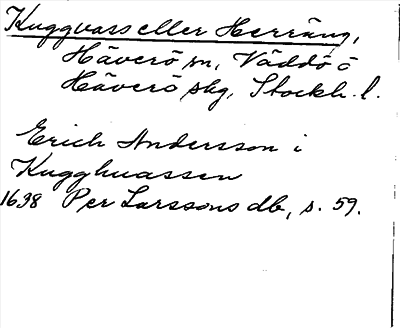 Kuggvass eller Herräng,
Häverö sn, Väddö o
Häverö skg, Stockh. l.
Erich Andersson i
Kugghuassen
1638 Per Larssons db, s. 59.